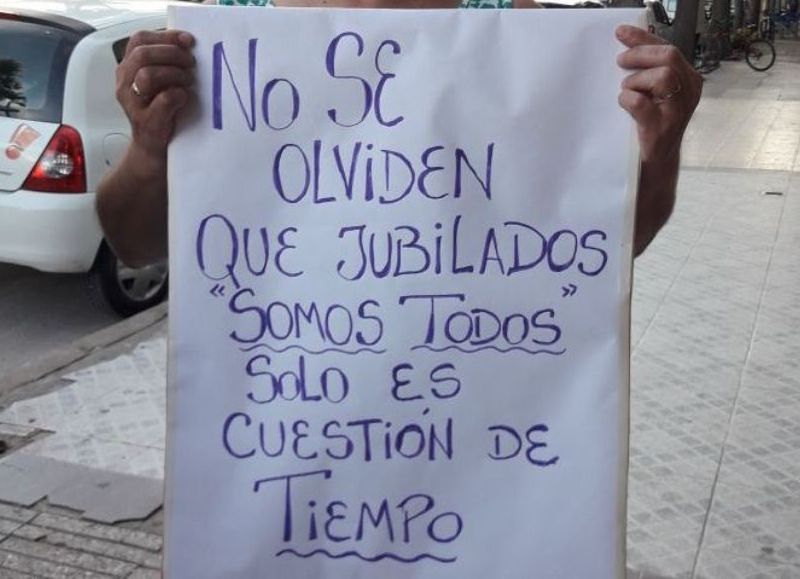 No SE
OLViDEN
QUE JUBiLADOS
"SOMOS TODOS"
SOLO ES
CUESTIÓN DE
TiEMPO